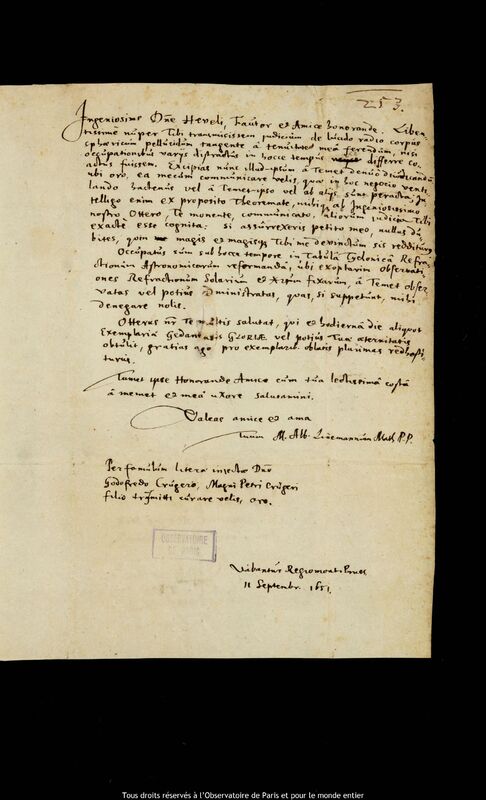 253.
Ingeniosime Dne Heveli, Fautor et Amice honorande. Liben-
tissimè nuper Tibi transmisissem judicium de lucido radio corpus
sphaericum pellucidum tangente à tenuitate meâ ferendum, nisi
occupationibus varijs distractus in hocce tempus differre co-
actus fuissem. Excipias nunc illud ipsum à Temet denuò dijudicandum
ubi oro, ea mecum communicare velis, quae in hoc negocio venti-
lando hactenus vel à Temetipso vel ab alijs sunt peracta; In-
telligo enim ex proposito Theoremate, mihiq; ab Ingeniosissimo
nostro, Ottero, Te monente, communicato, aliorum judicia Tibi
exactè esse cognita: si assurrexeris petito meo, nullus du-
bites, quin magis et magisq; Tibi me devinctum sis redditurus
Occupatus sum sub hocce tempore in Tabulâ Tychonicâ Refra-
ctionum Astronomicarum reformandâ, ubi exoptarim Observati-
ones Refractionum Solarium et Fixarum, à Temet obser-
vatas vel potius administratas, quas, si suppetunt, mihi
denegare nolis.
Otterus nr Te multis salutat, qui et hodiernâ die aliquot
Exemplaria Gedanensis gloriae vel potius Tuae aeternitatis
obtulit, gratias ago pro exemplaribus oblatis plurimas
Tumet ipse Honorande Amice cum tuâ lectissimâ costâ
à memet et meâ uxore salutamini.
Valeas amice et ama
Tuum M. Alb. Linemannum Math P.P.
Per famulum litera insectae Dno
Godofredo Crügero, Magni Petri Crügeri
filio transmitti curare velis, oro.
OBSERVATOIRE
DE PARIS
Regiomonti Pruss
11 Septembr. 1651.
Tous droits réservés à l'Observatoire de Paris et pour le monde entier